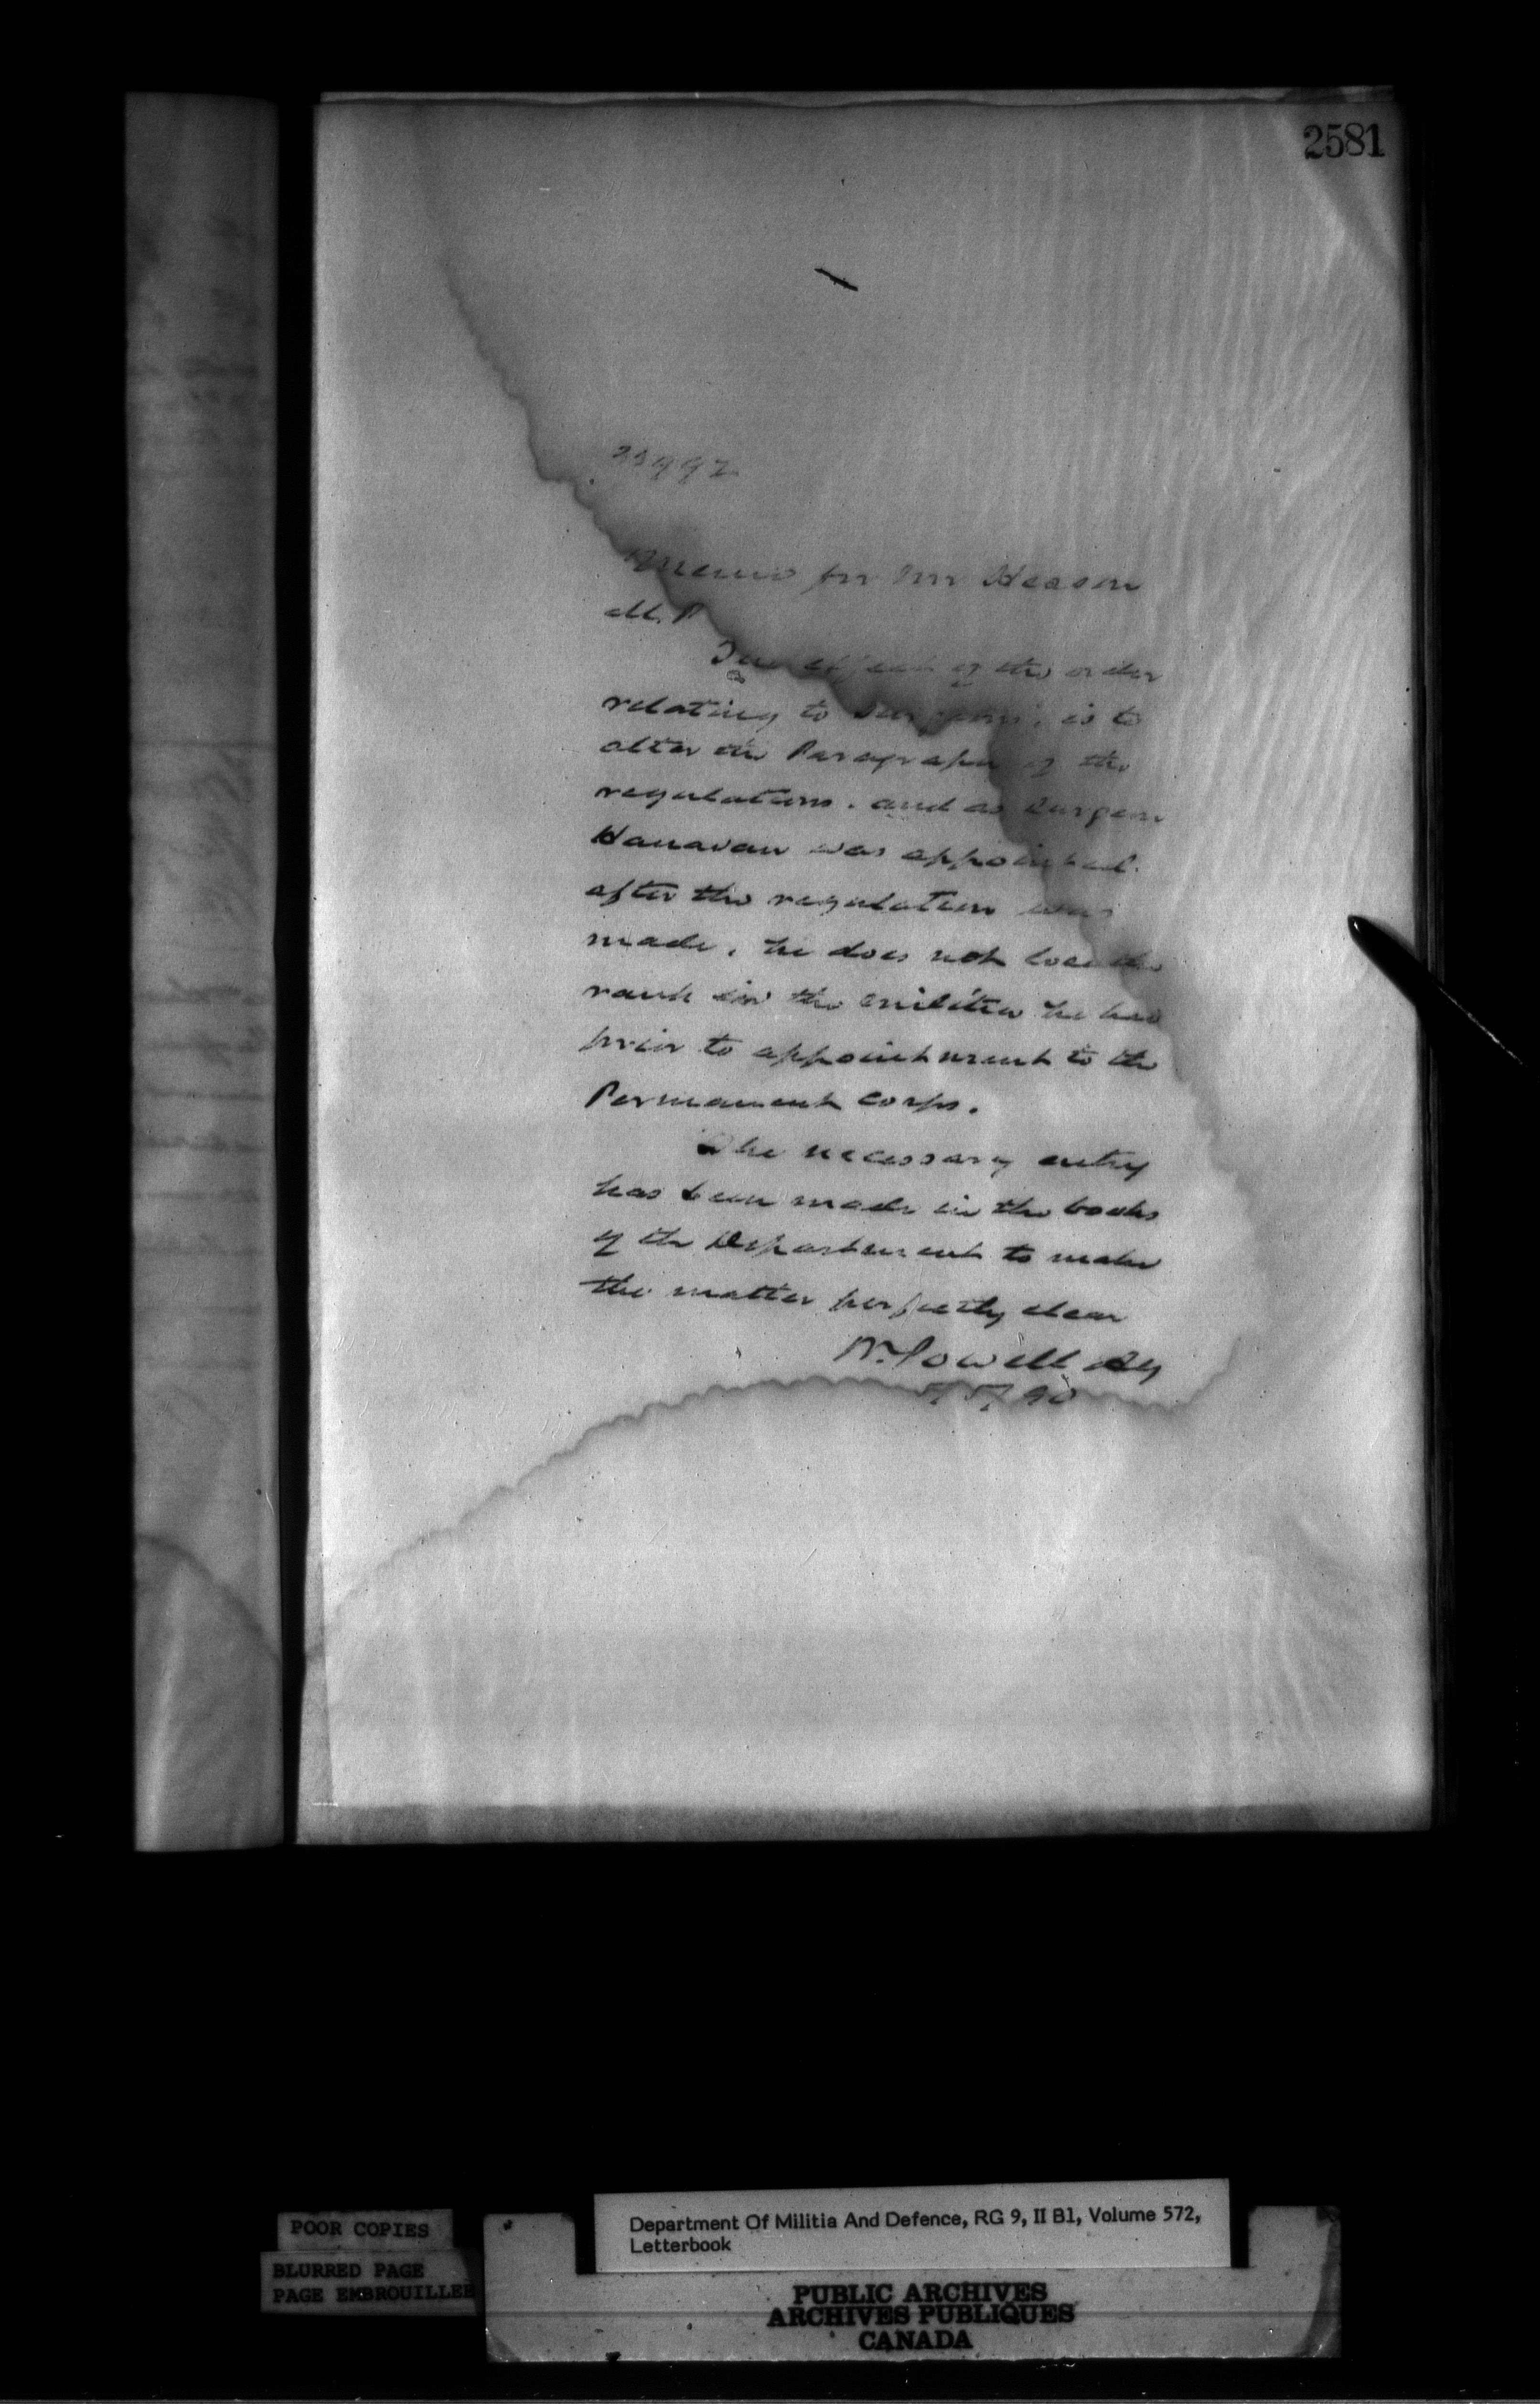 2581
Memo for Mr Hesson
M.P
The effect of the order
relating to Surgeons, is to
alter the Paragraph of the
regulations. and as Surgeon
Hanavan was appointed.
after the regulation was
made, he does not lose the
rank in the militia he had
prior to appointment to the
Permanent Corps.
The necessary entry
has been made in the books
of the Department to make
the matter perfectly clear
W. Powell AG
5/5/90
POOR COPIES
BLURRED PAGE
PAGE EMBROUILLEE
Department Of Militia And Defence, RG 9, II B1, Volume 572,
Letterbook
PUBLIC ARCHIVES
ARCHIVES PUBLIQUES
CANADA